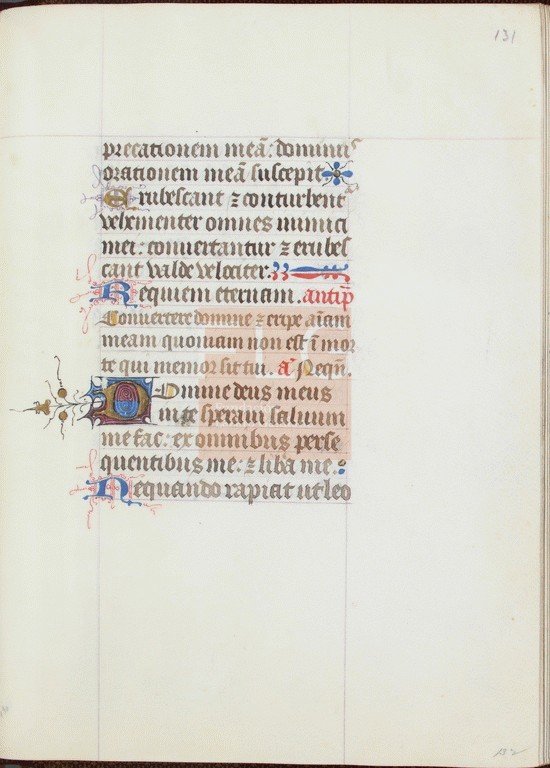 131
precationem meā: dominus
orationem meā suscepit
Erubescant ⁊ conturbent
vehementer omnes inimici
mei: convertantur ⁊ erubes
cant valde velociter.
Requiem eternam. antiph
Convertere domine ⁊ eripe aīam
meam quoniam non est ī mor
te qui memor sit tui. a Neqn.
Domine deus meus
in te speravi salvum
me fac: ex omnibus perse
quentibus me: ⁊ liba me
Nequando rapiat ut leo
132